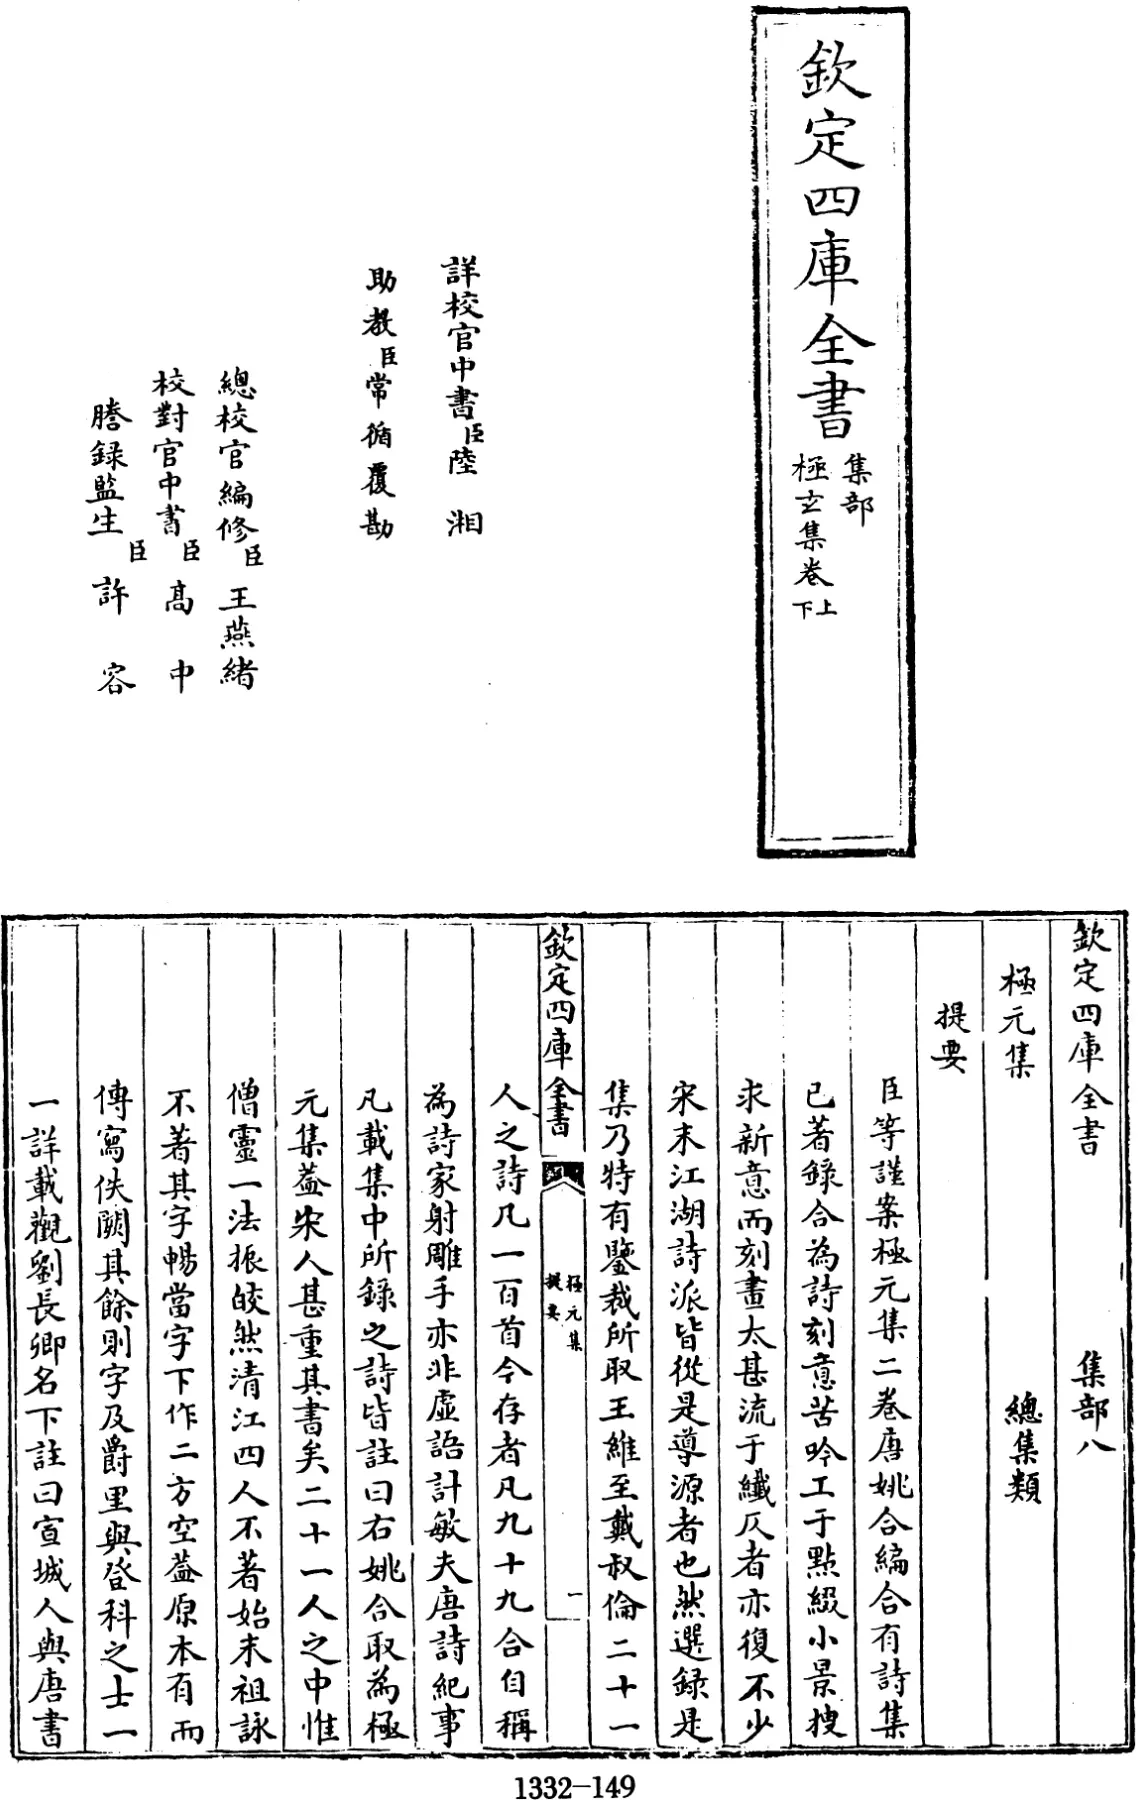 欽定四庫全書
集部
極玄集卷上下
詳校官中書臣陸湘
助教臣常循覆勘
總校官編修臣王燕緒
校對官中書臣高中
謄錄監生臣許容
欽定四庫全書 集部八
極元集 總集類
提要
臣等謹案極元集二卷唐姚合編合有詩集
已著錄合為詩刻意苦吟工于點綴小景搜
求新意而刻畫太甚流于纖仄者亦復不少
宋末江湖詩派皆從是導源者也然選錄是
集乃特有鑒裁所取王維至戴叔倫二十一
欽定四庫全書
極元集
提要
一
人之詩凡一百首今存者凡九十九合自稱
為詩家射雕手亦非虛語計敏夫唐詩紀事
凡載集中所錄之詩皆註曰右姚合取為極
元集葢宋人甚重其書矣二十一人之中惟
僧靈一法振皎然清江四人不著始末祖詠
不著其字暢當字下作二方空葢原本有而
傳寫佚闕其餘則字及爵里與登科之士一
一詳載觀劉長卿名下註曰宣城人與唐書
1332-149